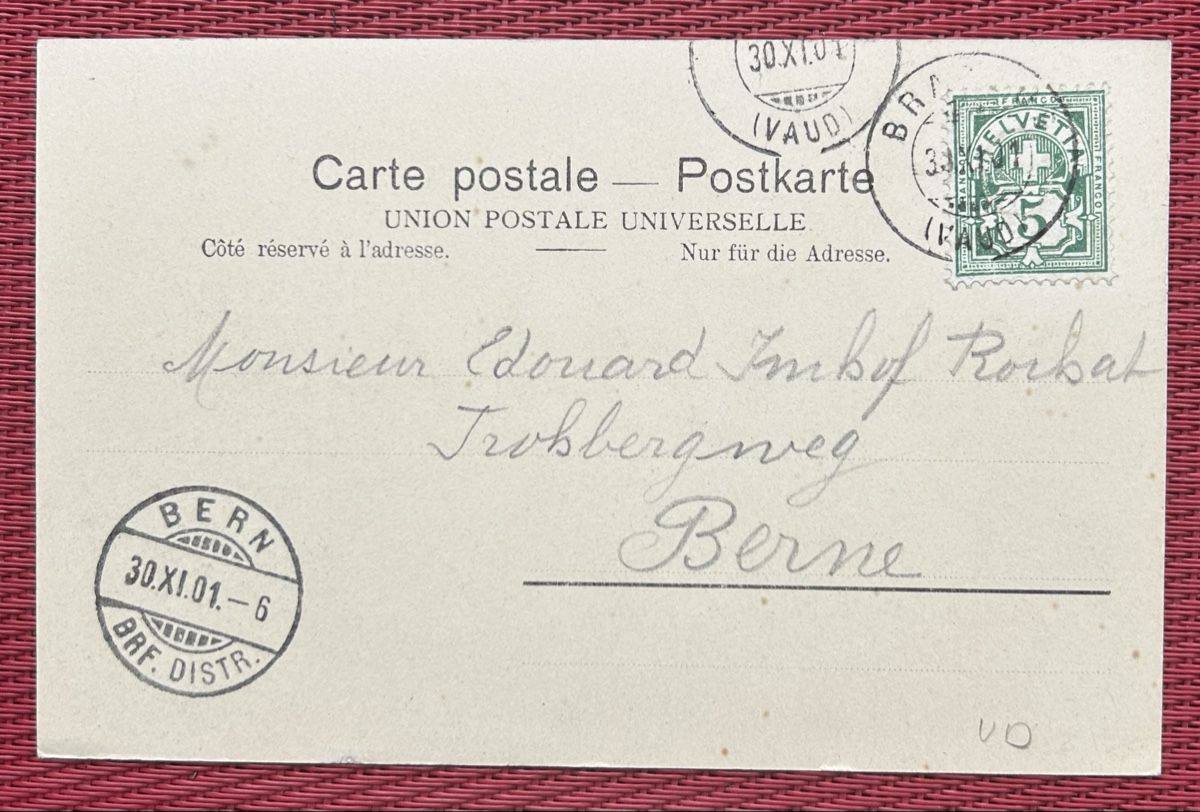 30.XI.01
(VAUD)
BRA
30.XI.01
(VAUD)
FRANCO
HELVETIA
FRANCO
5
Carte postale — Postkarte
UNION POSTALE UNIVERSELLE.
Côté réservé à l'adresse.
Nur für die Adresse.
Monsieur Edouard Imhof Rochat
Berne
BERN
30.XI.01.-6
BRF. DISTR.
VD